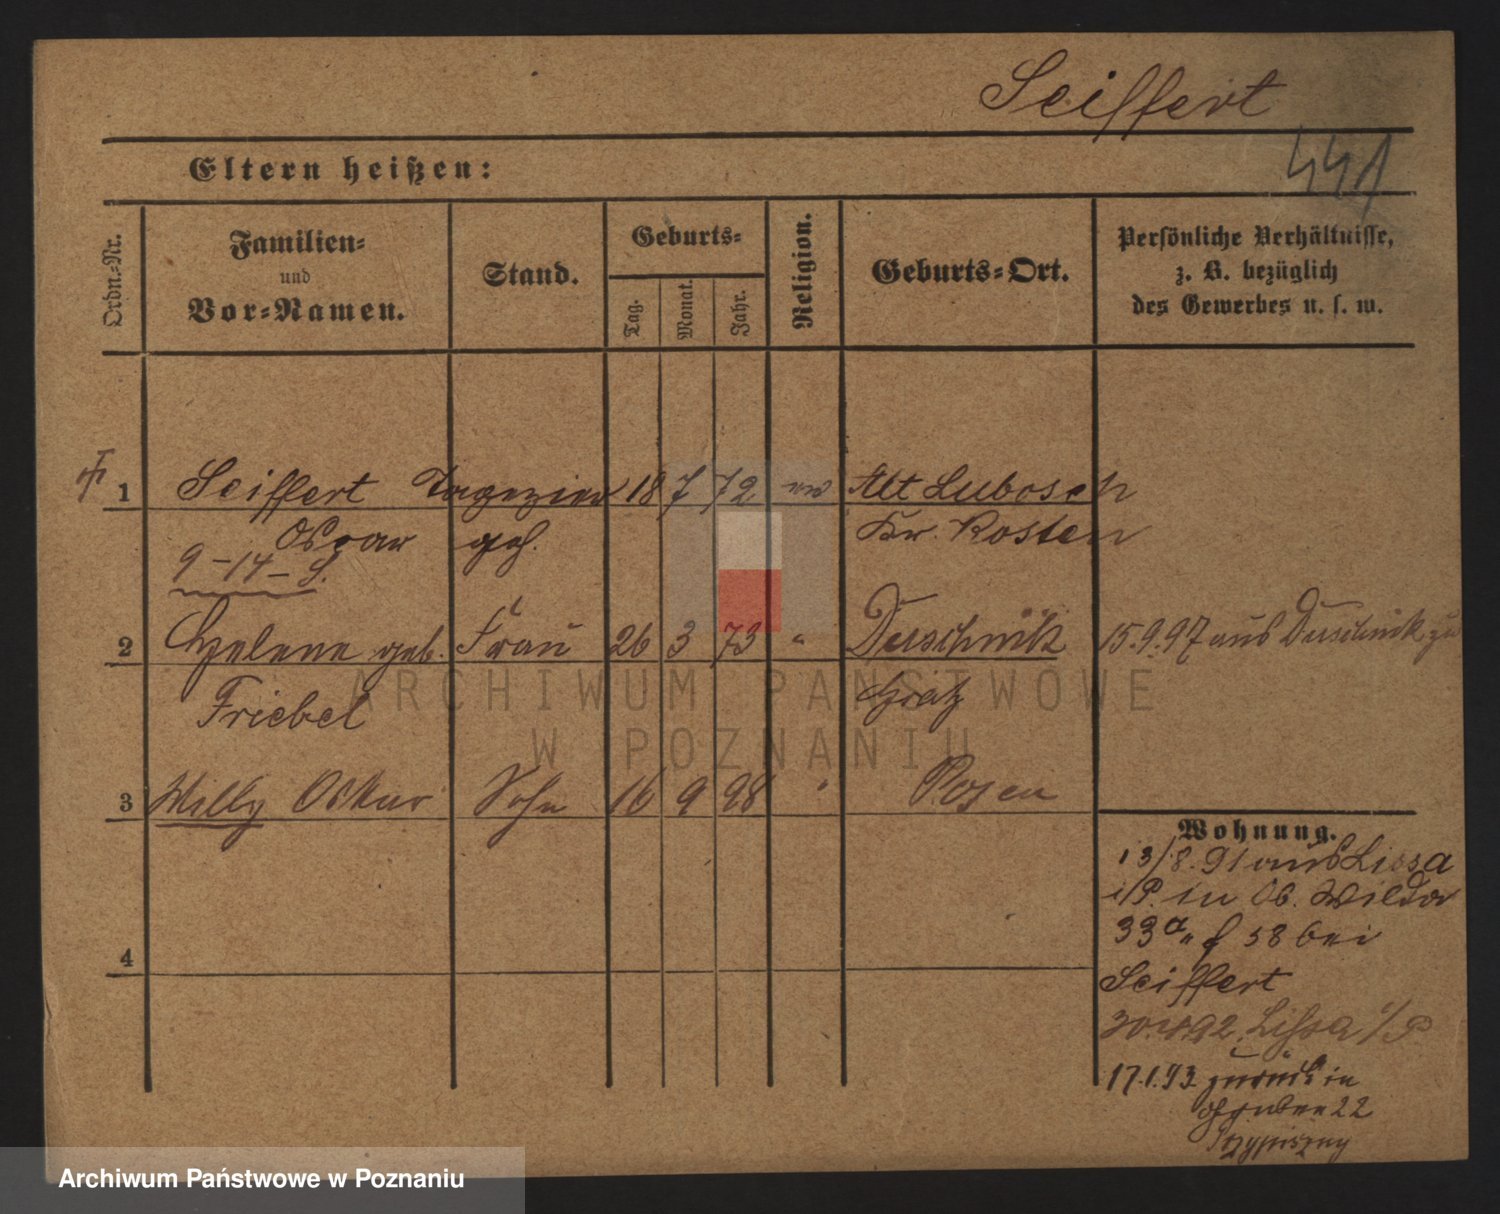 Seiffert
441
Eltern heißen:
Ordn.-Nr.
Familien-
und
Vor-Namen.
Stand.
Geburts-
Tag.
Monat.
Jahr.
Religion.
Geburts-Ort.
Persönliche Verhältnisse,
z. B. bezüglich
des Gewerbes u. s. w.
1 Seiffert Tapezier 18 7 72 ev Alt Lubosch
Oscar geh. Kr. Kosten
9-14-S.
2 Helene geb. Frau 26 3 73 " Duschnik 15.9.97 aus Duschnik zu
Friebel Grätz
3 Willy Oskar Sohn 16 9 98 " Posen
4
Wohnung.
13/8. 91 aus Lissa
i/P. in Ob. Wilda
33a f 58 bei
Seiffert
92. Lissa i/P
17.1.93 zurück in
22
ARCHIWUM PAŃSTWOWE
W POZNANIU
Archiwum Państwowe w Poznaniu